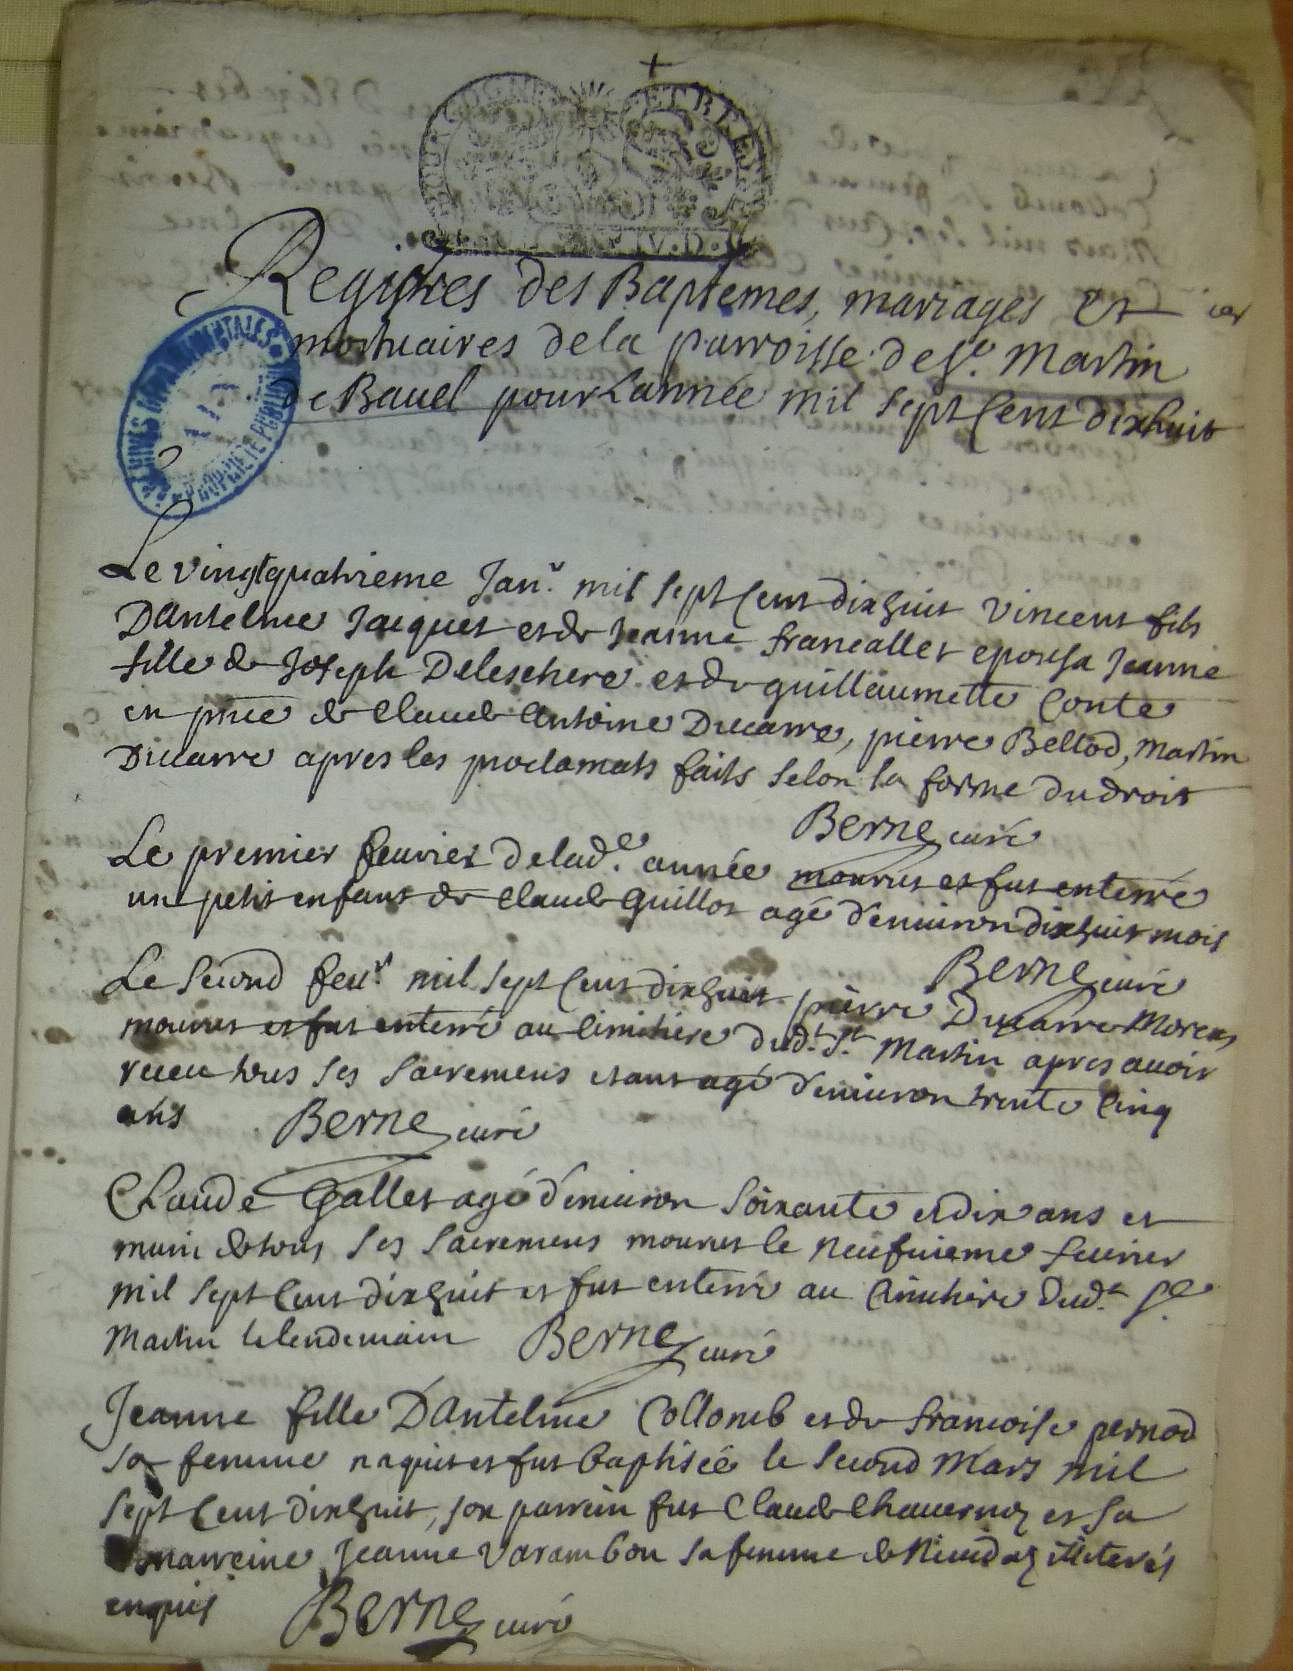 BOURGOGNE ET BRESSE
Registres des Baptemes, mariages et
mortuaires de la parroisse de St. Martin
de Bavel pour Lannée mil sept Cent dixhuit
ARCHIVES DEPARTEMENTALES
PROPRIETE PUBLIQUE
Le vingtquatrieme Janr. mil sept Cent dixhuit Vincent fils
DAntelme Jacquet et de Jeanne francallet epousa Jeanne
fille de Joseph Deleschere et de guillaumette Conte
en pnce de Claude Antoine Ducarre, pierre Bellod, Martin
Ducarre apres les proclamats faits selon la forme du droit
Berne curé
Le premier feuvrier de lade. année mourut et fut enterré
un petit enfant de Claude Guillot agé d'environ dixhuit mois
Berne curé
Le second feur. mil sept Cent dixhuit pierre Ducarre Morens
mourut et fut enterré au Cimitiere dudt. St. Martin apres avoir
receu tous ses sacremens etant agé d'environ trente Cinq
ans Berne curé
Claude Gallet agé d'environ soixante et dix ans et
muni de tous ses sacremens mourut le neufvieme fevrier
mil sept Cent dixhuit et fut enterré au Cimitiere dudt. St.
Martin le lendemain Berne curé
Jeanne fille DAntelme Collomb et de francoise pernod
sa femme naquit et fut baptisée le second Mars mil
sept Cent dixhuit, son parrein fut Claude Chavernoz et sa
marreine Jeanne Varambon sa femme de illiterés
enquis Berne curé